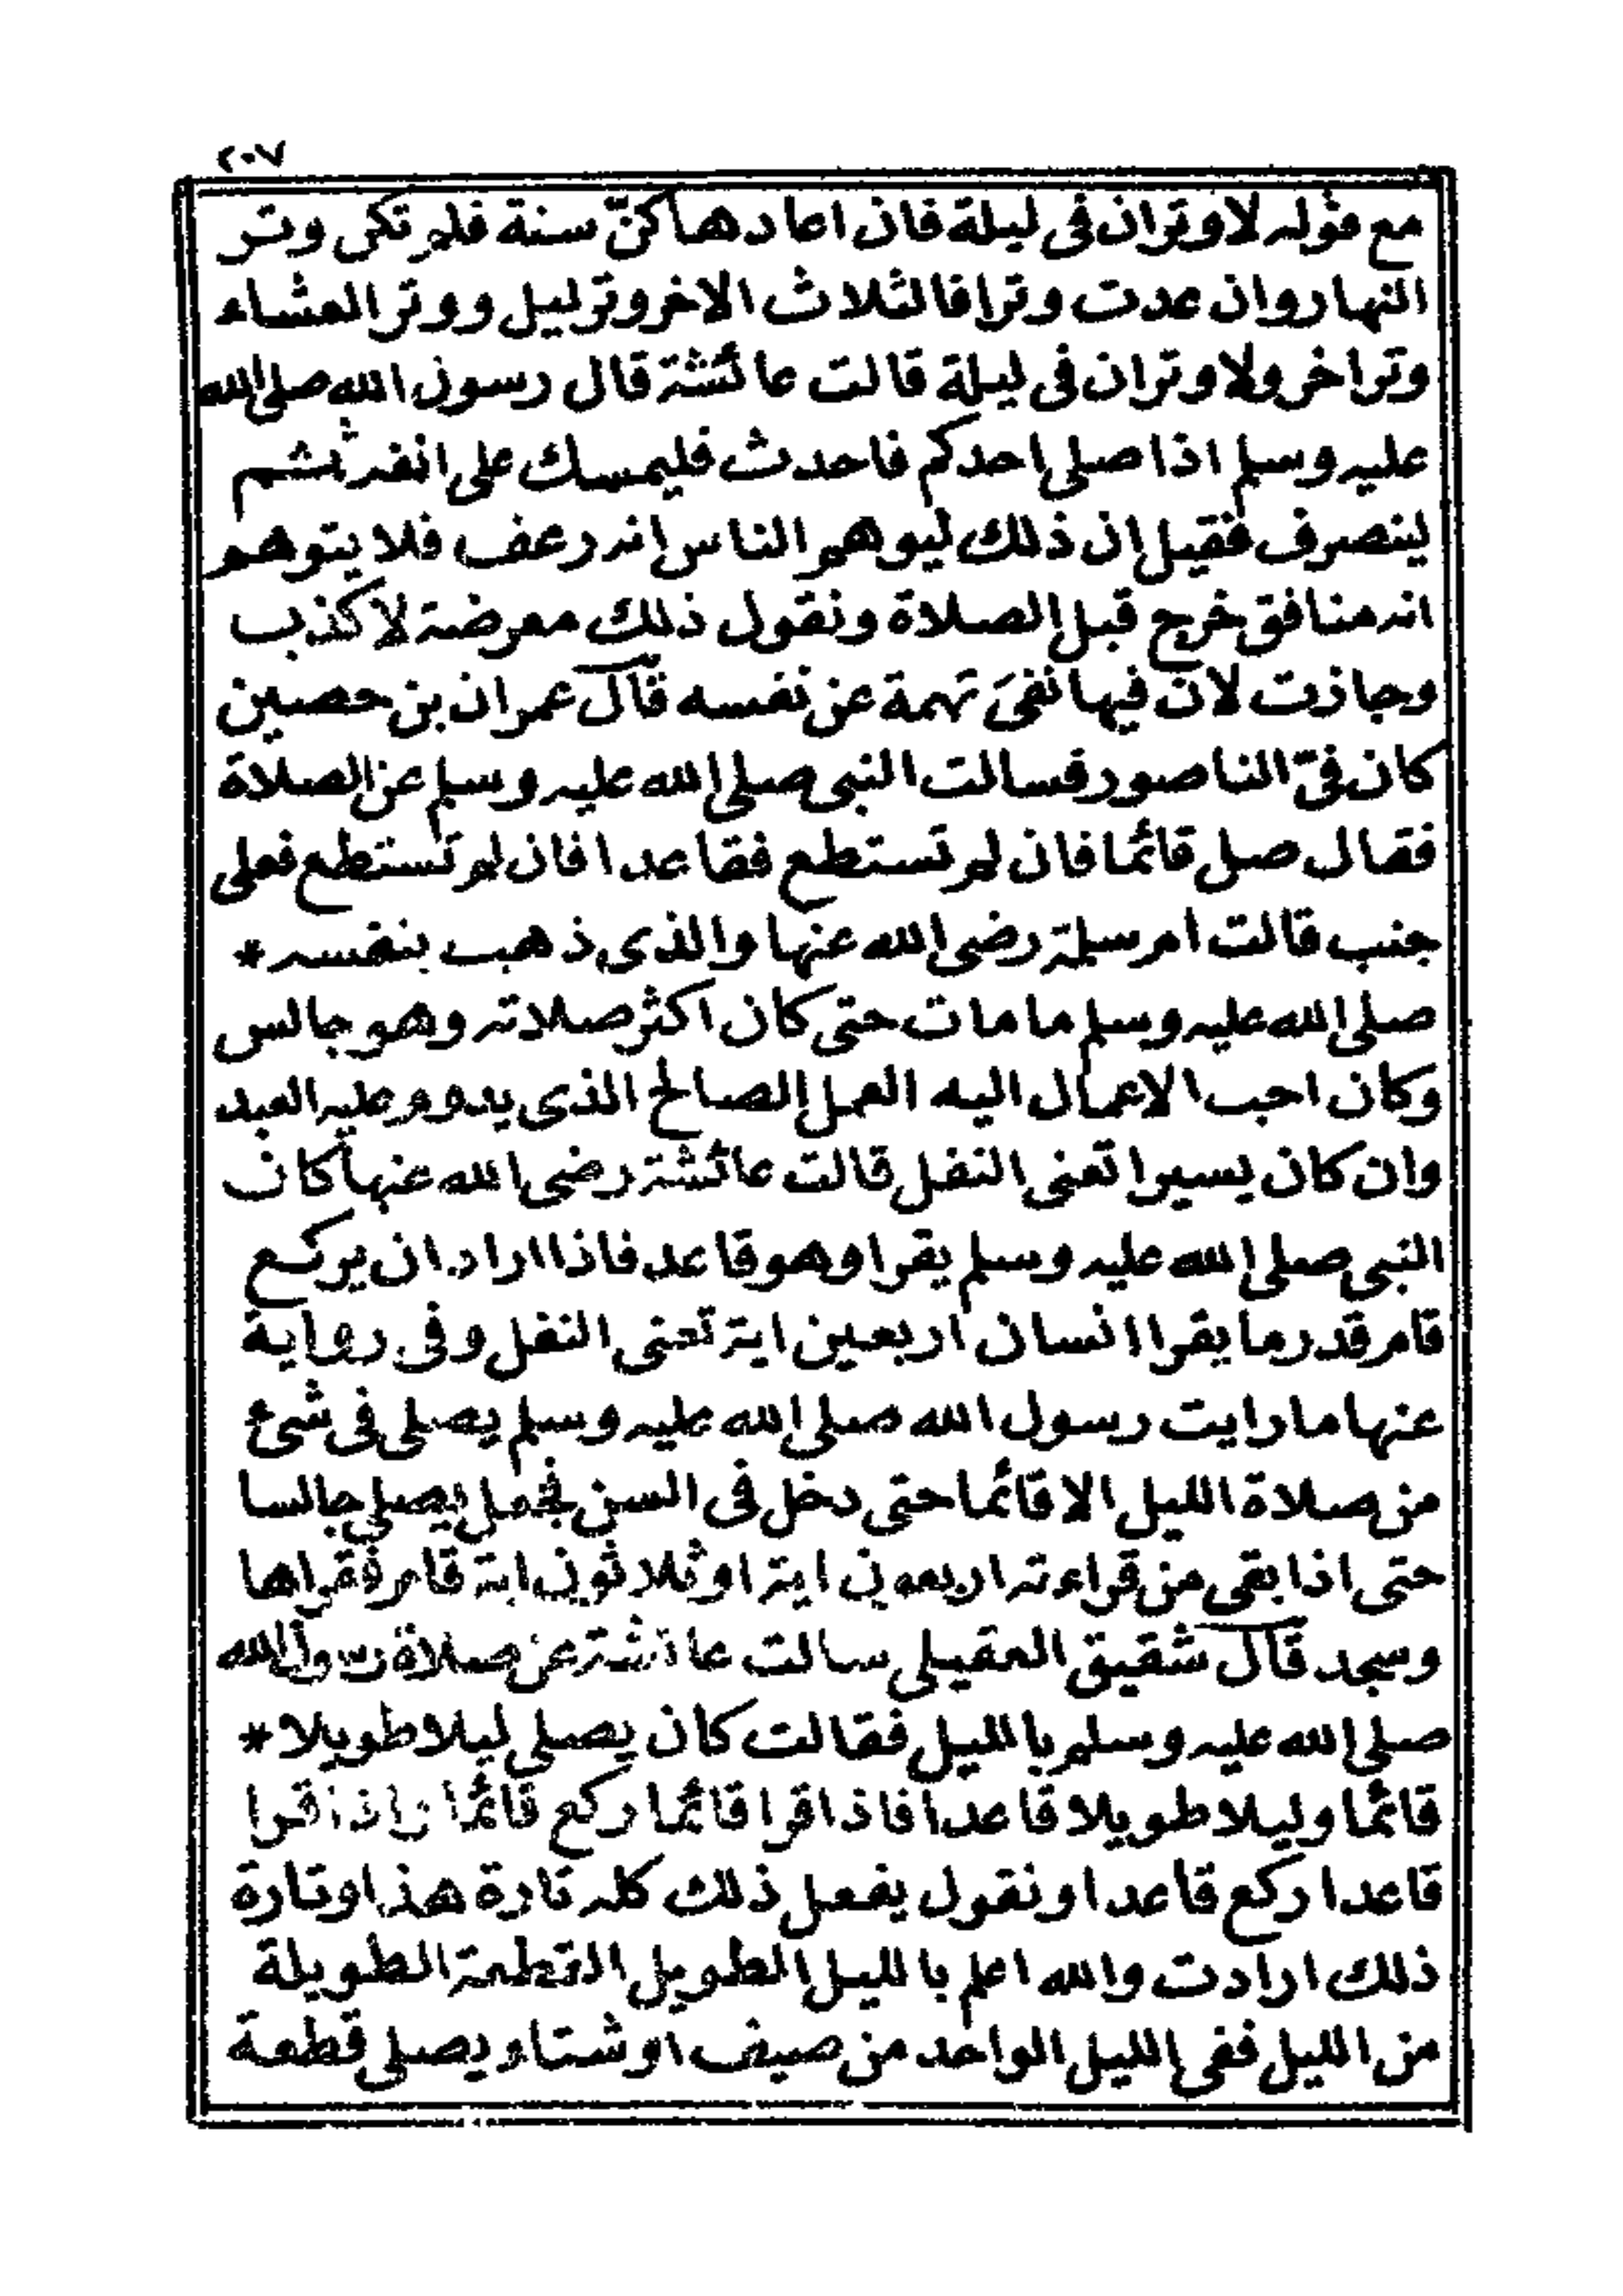 ٢٠٧
مع قوله لا وتران فى ليلة فان اعادها كنّ سنة فلم تكن وتر
النهار وان عدت وترا فالثلاث الاخر وتر ليل ووتر العشاء
وتر اخر ولا وتران فى ليلة قالت عائشة قال رسول الله صلى الله
عليه وسلم اذا صلى احدكم فاحدث فليمسك على انفه ثم
لينصرف فقيل ان ذلك ليوهم الناس انه رعف فلا يتوهم
انه منافق خرج قبل الصلاة ونقول ذلك معرضة لا كذب
وجازت لان فيها نفى تهمة عن نفسه قال عمران بن حصين
كان فىّ الناصور فسالت النبى صلى الله عليه وسلم عن الصلاة
فقال صل قائما فان لم تستطع فقاعدا فان لم تستطع فعلى
جنب قالت ام سلمة رضى الله عنها والذى ذهب بنفسه *
صلى الله عليه وسلم ما مات حتى كان اكثر صلاته وهو جالس
وكان احب الاعمال اليه العمل الصالح الذى يدوم عليه العبد
وان كان يسيرا تعنى النفل قالت عائشة رضى الله عنها كان
النبى صلى الله عليه وسلم يقرا وهو قاعد فاذا اراد ان يركع
قام قدر ما يقرا انسان اربعين اية تعنى النفل وفى رواية
عنها ما رايت رسول الله صلى الله عليه وسلم يصلى فى شئ
من صلاة الليل الا قائما حتى دخل فى السن فجعل يصلى جالسا
حتى اذا بقى من قراءته اربعون اية او ثلاثون اية قام فقراها
وسجد قال شقيق العقيلى سالت عائشة عن صلاة رسول الله
صلى الله عليه وسلم بالليل فقالت كان يصلى ليلا طويلا *
قائما وليلا طويلا قاعدا فاذا قرا قائما ركع قائما واذا قرا
قاعدا ركع قاعدا ونقول يفعل ذلك كله تارة هذا وتارة
ذلك ارادت والله اعلم بالليل الطويل القطعة الطويلة
من الليل ففى الليل الواحد من صيف او شتاء يصلى قطعة